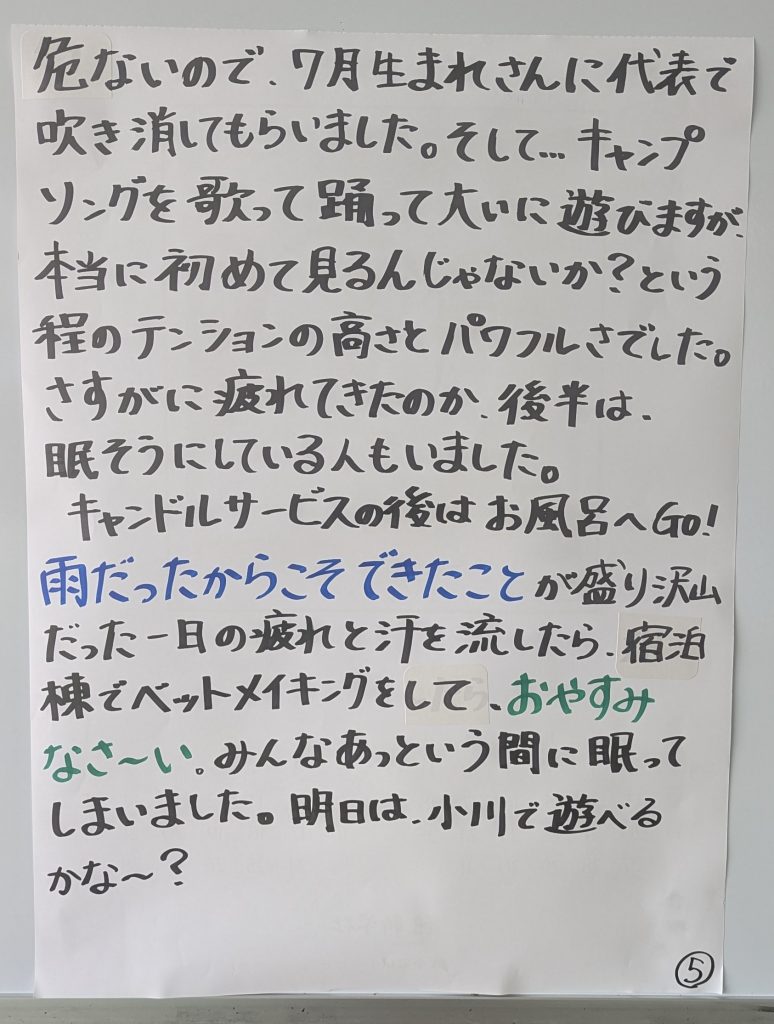 危ないので、7月生まれさんに代表で
吹き消してもらいました。そして…キャンプ
ソングを歌って踊って大いに遊びますが、
本当に初めて見るんじゃないか?という
程のテンションの高さとパワフルさでした。
さすがに疲れてきたのか、後半は、
眠そうにしている人もいました。
キャンドルサービスの後はお風呂へGo!
雨だったからこそできたことが盛り沢山
だった一日の疲れと汗を流したら、宿泊
棟でベットメイキングをして、おやすみ
なさ〜い。みんなあっという間に眠って
しまいました。明日は、小川で遊べる
かな〜?
⑤